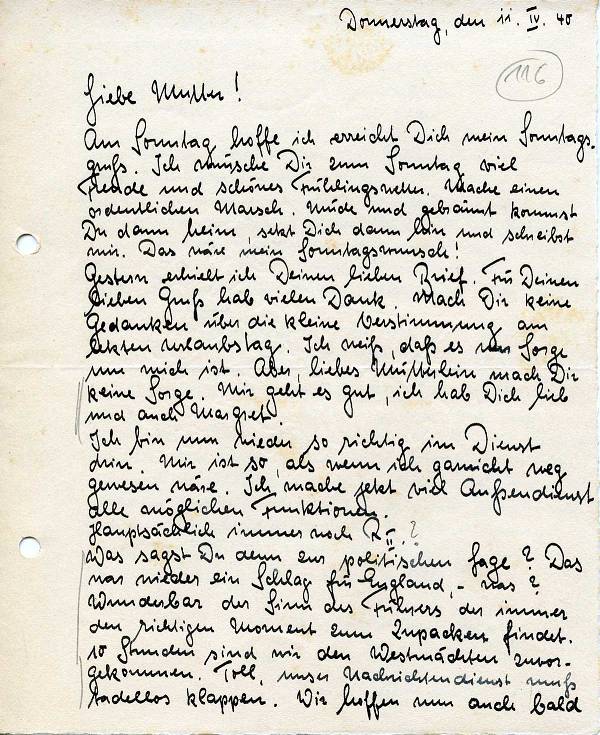 Donnerstag, den 11. IV. 40
116
Liebe Mutter!
Am Sonntag hoffe ich erreicht Dich mein Sonntags-
gruß. Ich wünsche Dir zum Sonntag viel
Freude und schönes Frühlingswetter. Mache einen
ordentlichen Marsch. Müde und gebräunt kommst
Du dann heim, setzt Dich dann hin und schreibst
mir. Das wäre mein Sonntagswunsch!
Gestern erhielt ich Deinen lieben Brief. Für Deinen
lieben Gruß hab vielen Dank. Mach Dir keine
Gedanken über die kleine Verstimmung am
letzten Urlaubstag. Ich weiß, daß es nur Sorge
um mich ist. Aber, liebes Mütterlein mach Dir
keine Sorge. Mir geht es gut, ich hab Dich lieb
und auch Margret.
Ich bin nun wieder so richtig im Dienst
drin. Mir ist so, als wenn ich garnicht weg
gewesen wäre. Ich mache jetzt viel Außendienst
alle möglichen Funktionen.
Hauptsächlich immer noch R II. ?
Was sagst Du denn zur politischen Lage? Das
war wieder ein Schlag für England, - was?
Wunderbar der Sinn des Führers der immer
den richtigen Moment zum Zupacken findet.
10 Stunden sind wir den Westmächten zuvor-
gekommen. Toll, unser Nachrichtendienst muß
tadellos klappen. Wir hoffen nun auch bald